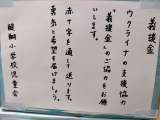 義援金
ウクライナの支援協力
"義援金"のご協力をお願
いします。
赤十字を通して送ります。
勇気と希望を届けましょう。
醍醐小学校児童会